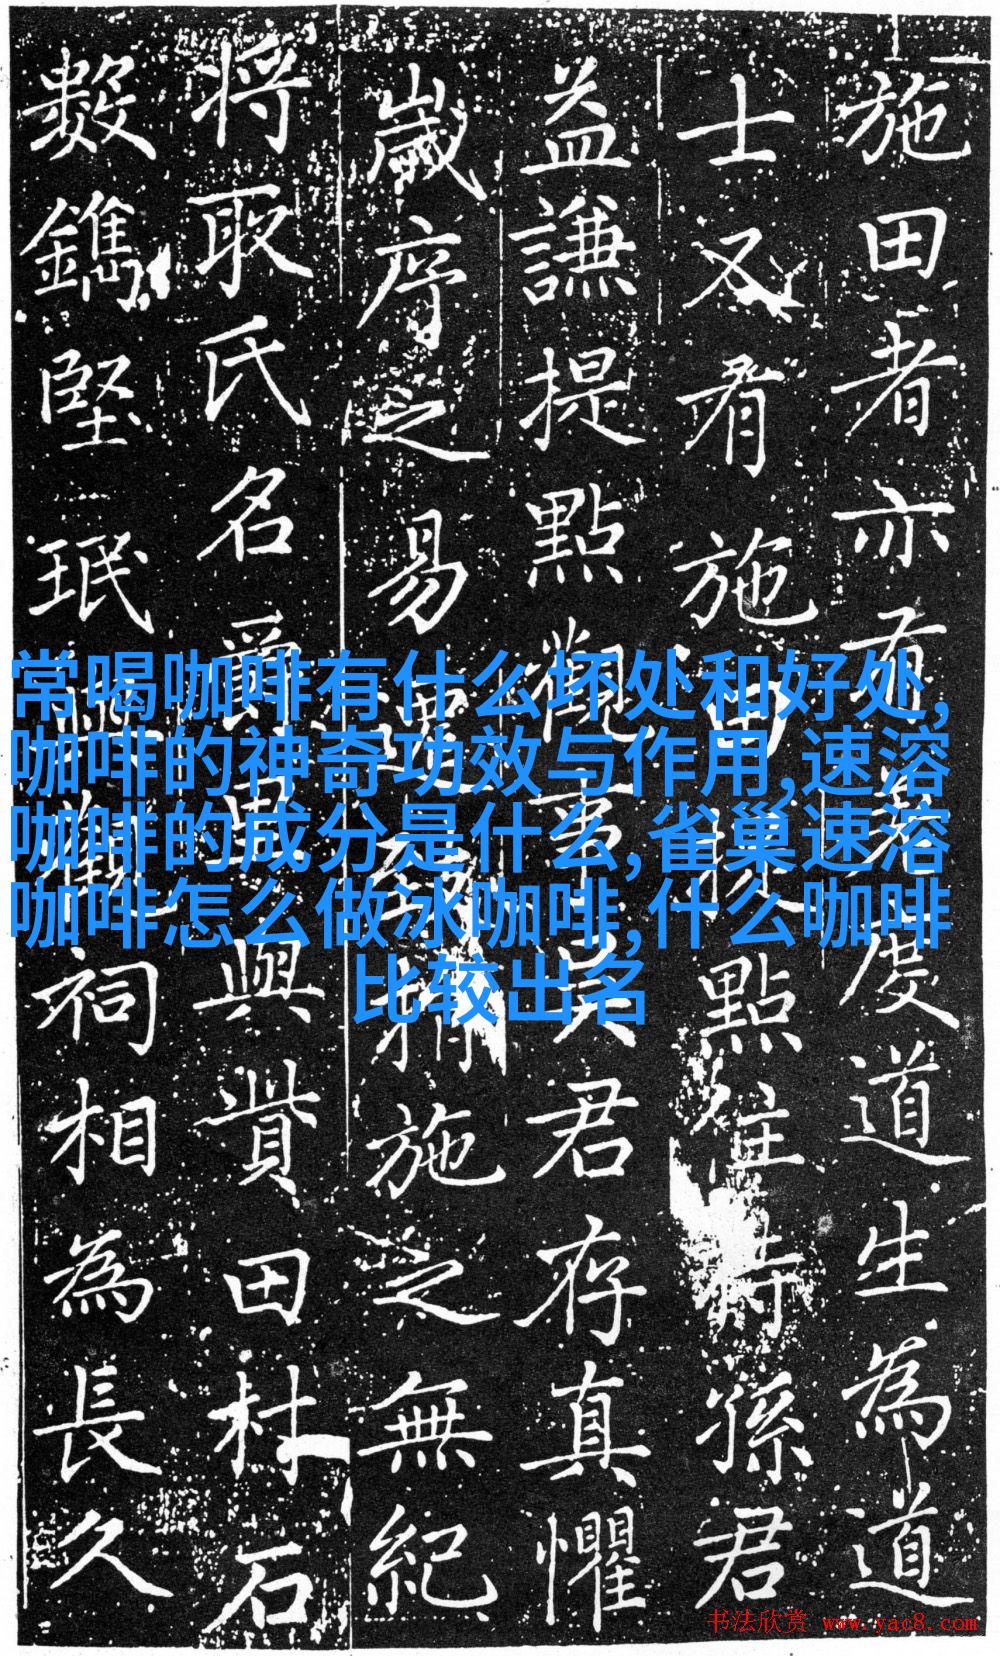 施田者亦有度道生為道
士又有施田提點住持孫君
益謙提點觀事君存真懼
歲序之易施之無紀
将取氏名與貲田杜石
數鐫堅珉祠相為長久
常喝咖啡有什么坏处和好处,
咖啡的神奇功效与作用,速溶
咖啡的成分是什么,雀巢速溶
咖啡怎么做冰咖啡,什么咖啡
比较出名
书法欣赏 www.yac8.com